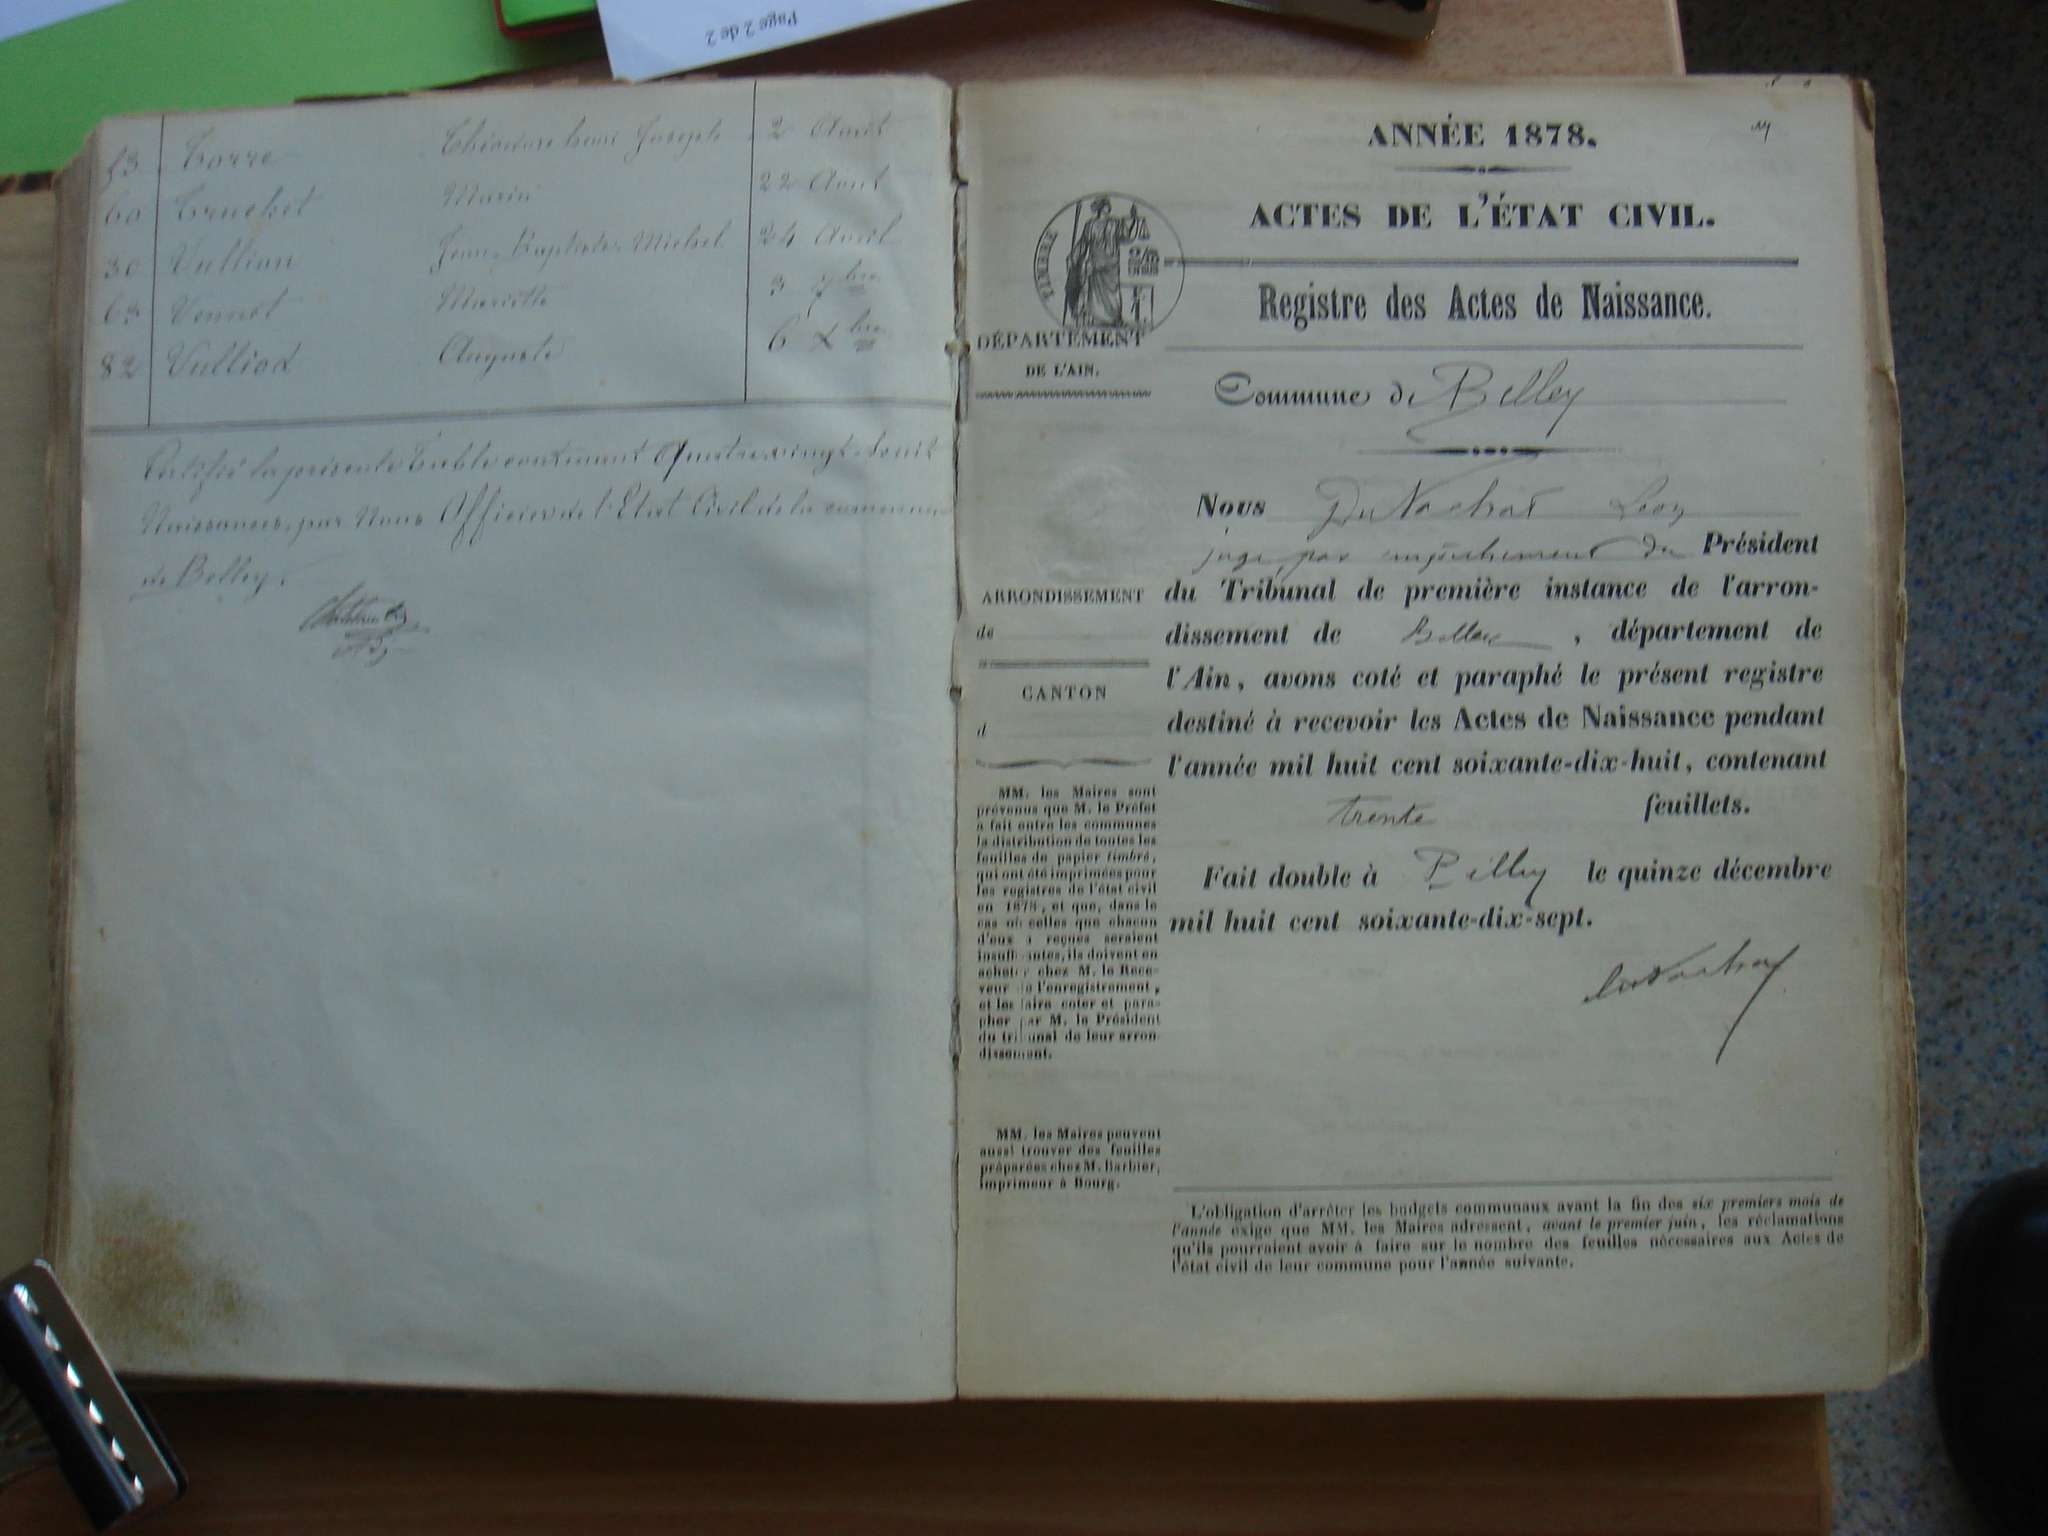 Page 2 de 2
53 Torre Théodore Louis Joseph 2 Août
60 Truchet Marie 22 Août
30 Vullion Jean-Baptiste-Michel 24 Avril
63 Vennot Mariette 3 7bre
82 Vulliod Auguste 6 Xbre
Certifié la présente Table contenant Quatre vingt-huit
Naissances, par Nous Officier de l'Etat Civil de la commune
de Belley.
ANNÉE 1878.
ACTES DE L'ÉTAT CIVIL.
TIMBRE
Registre des Actes de Naissance.
DÉPARTEMENT
DE L'AIN.
Commune de Belley
Nous Du Nachat Léon
juge, par empêchement du Président
ARRONDISSEMENT
de
CANTON
d
du Tribunal de première instance de l'arron-
dissement de Belley, département de
l'Ain, avons coté et paraphé le présent registre
destiné à recevoir les Actes de Naissance pendant
l'année mil huit cent soixante-dix-huit, contenant
trente feuillets.
Fait double à Belley le quinze décembre
mil huit cent soixante-dix-sept.
du Nachat
MM. les Maires sont
prévenus que M. le Préfet
a fait entre les communes
la distribution de toutes les
feuilles de papier timbré,
qui ont été imprimées pour
les registres de l'état civil
en 1878, et que, dans le
cas où celles que chacun
d'eux a reçues seraient
insuffisantes, ils doivent en
acheter chez M. le Rece-
veur de l'enregistrement,
et les faire coter et para-
pher par M. le Président
du tribunal de leur arron-
dissement.
MM. les Maires peuvent
aussi trouver des feuilles
préparées chez M. Barbier,
imprimeur à Bourg.
L'obligation d'arrêter les budgets communaux avant la fin des six premiers mois de
l'année exige que MM. les Maires adressent, avant le premier juin, les réclamations
qu'ils pourraient avoir à faire sur le nombre des feuilles nécessaires aux Actes de
l'état civil de leur commune pour l'année suivante.